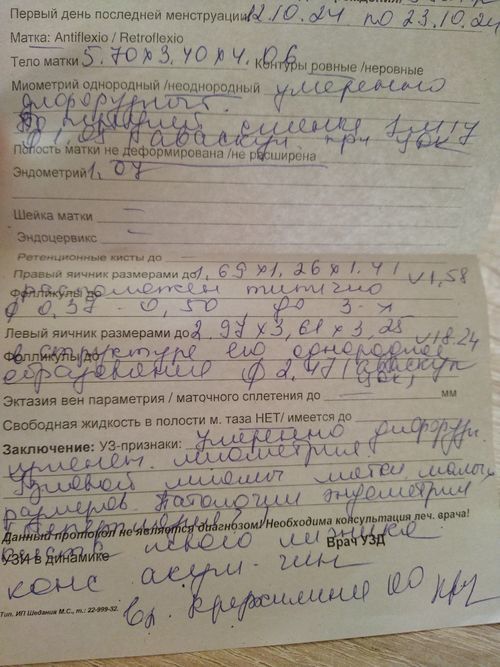 Первый день последней менструации 12.10.24 по 23.10.24
Матка: Antiflexio / Retroflexio
Тело матки 5.70х3.40х4.06 Контуры ровные /неровные
Миометрий однородный /неоднородный умеренно
диффузный.
По передней стенке
ф 1.01 аваскул. при ЦДК
Полость матки не деформирована /не расширена
Эндометрий 1,07
Шейка матки —
Эндоцервикс —
Ретенционные кисты до
Правый яичник размерами до 1,69х1,26х1.41 v 1,58
расположен типично
Фолликулы до ф 0,37 - 0,50 до 3-х
Левый яичник размерами до 2,97х3,61х3,25 v 18.24
Фолликулы до в структуре его однородное
образование ф 2,47 (аваскул
ЦДК)
Эктазия вен параметрия / маточного сплетения до — мм
Свободная жидкость в полости м. таза НЕТ/ имеется до
Заключение: УЗ-признаки: умеренно диффузн.
изменен. миометрия
Узловой миомы матки малых
размеров. Патологии эндометрия
Данный протокол не является диагнозом! Необходима консультация леч. врача!
левого яичника.
УЗИ в динамике Врач УЗД
конс акуш - гин
Тип. ИП Шедания М.С., т.: 22-999-32.